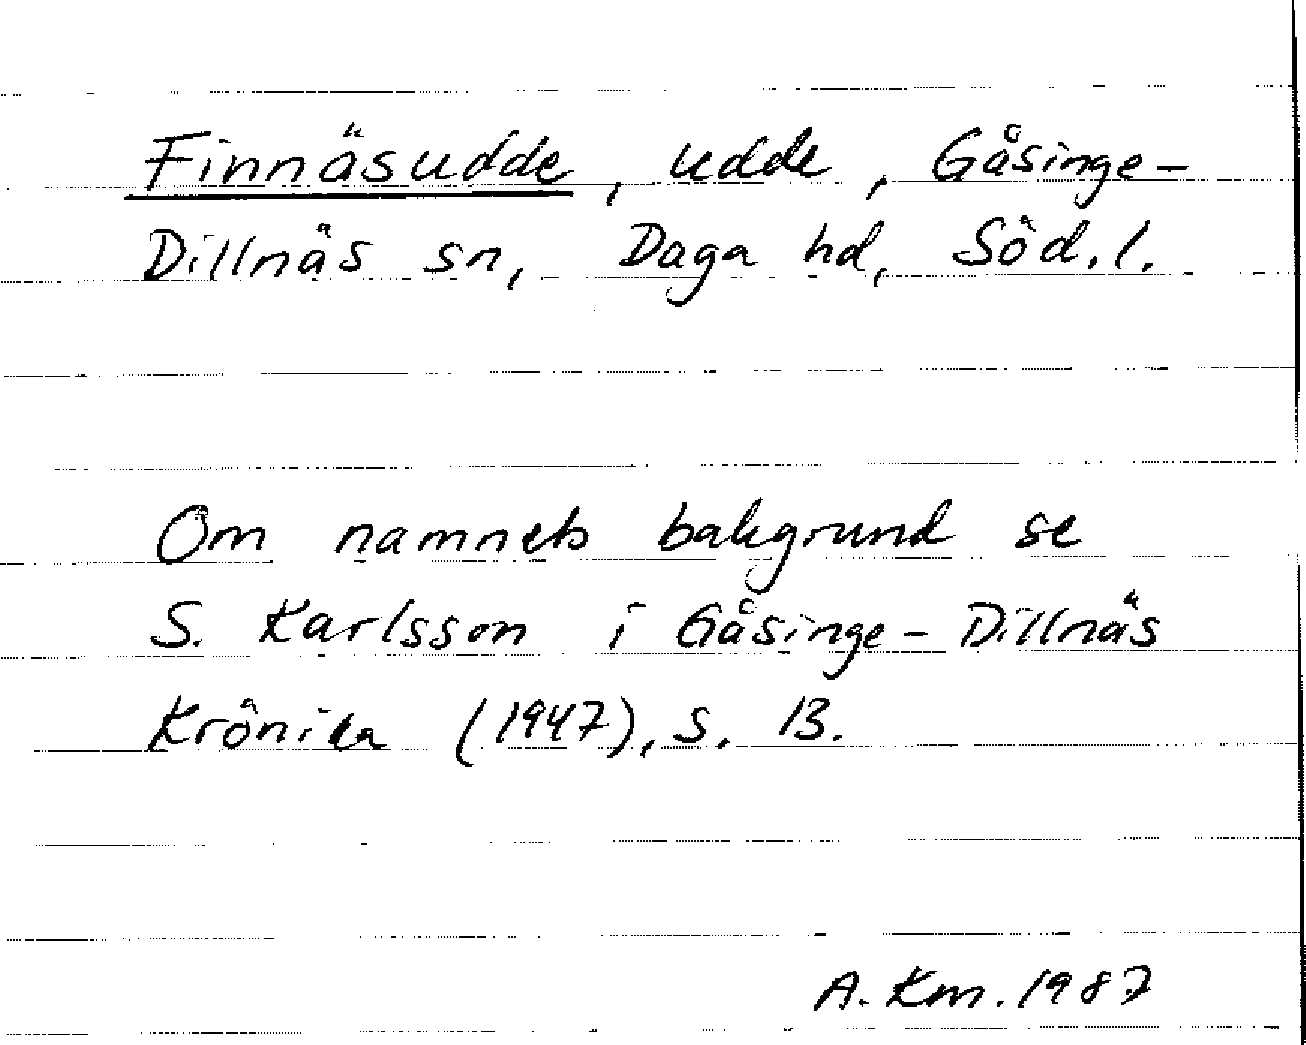 Finnäsudde, udde, Gåsinge-
Dillnäs sn, Daga hd, Söd.l.
Om namnets bakgrund se
S. Karlsson i Gåsinge-Dillnäs
Krönika (1947), s. 13.
A. Km. 1987